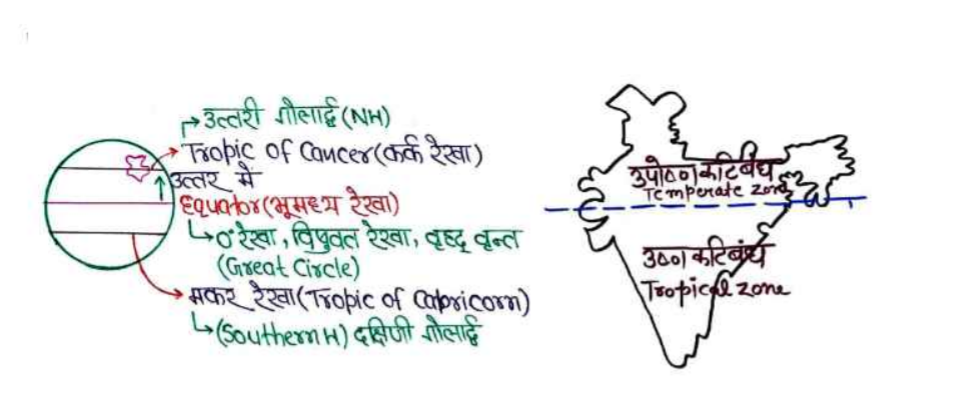 उत्तरी गोलार्द्ध (NH)
Tropic of Cancer (कर्क रेखा)
उत्तर में
Equator (भूमध्य रेखा)
0° रेखा, विषुवत रेखा, वृहद् वृन्त
(Great Circle)
मकर रेखा (Tropic of Capricorn)
(Southern H) दक्षिणी गोलार्द्ध
उपोष्ण कटिबंध
Temperate zone
उष्ण कटिबंध
Tropical zone